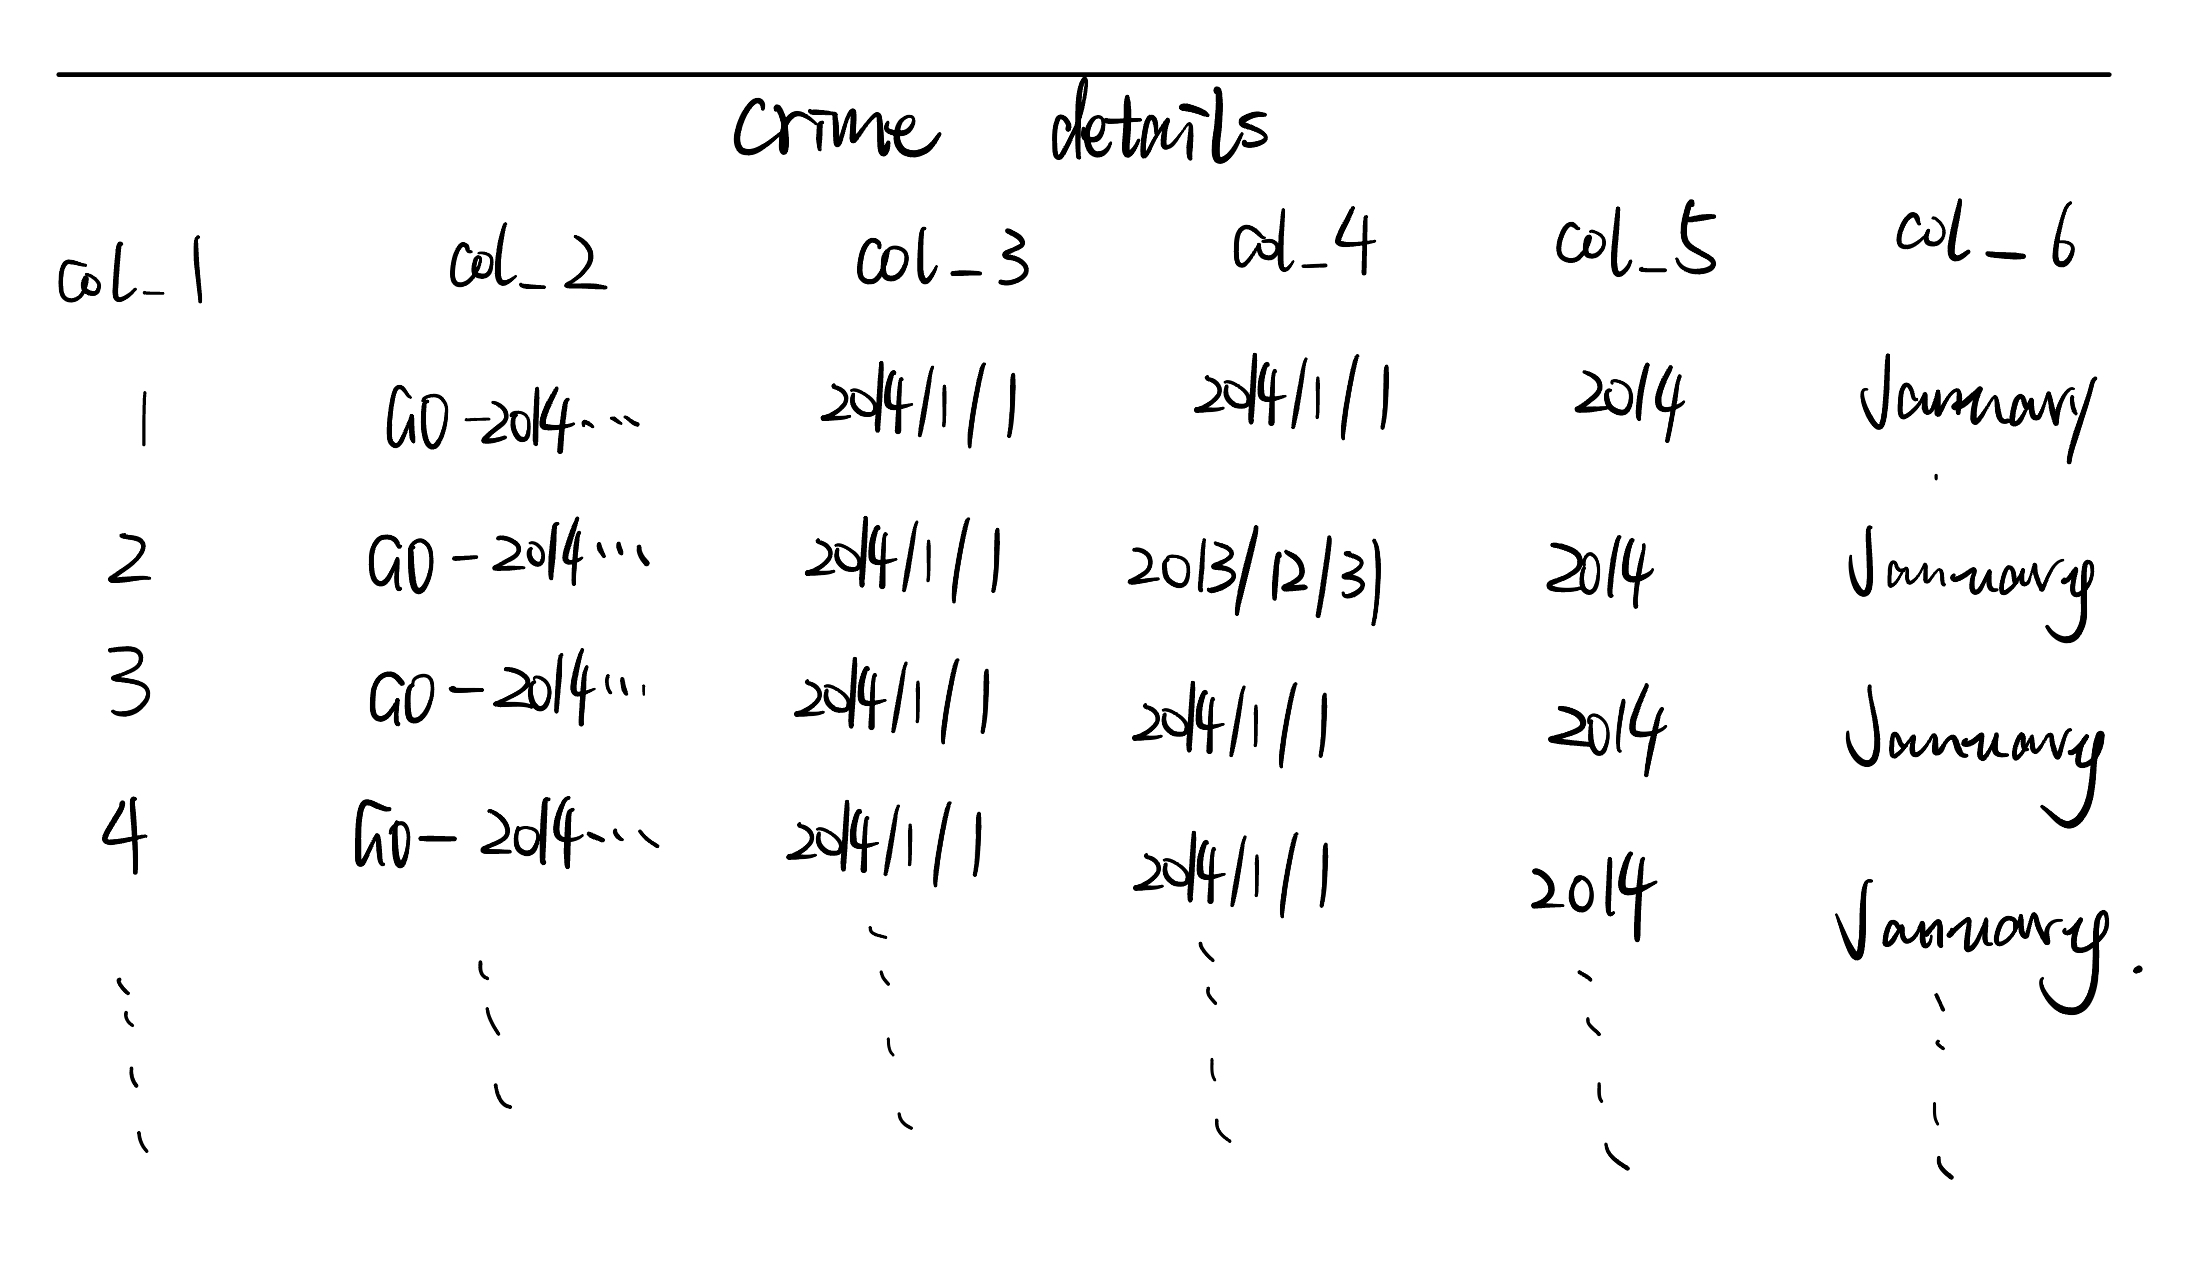 Crime details
col_1 col_2 col_3 col_4 col_5 col_6
1 GO-2014... 2014/1/1 2014/1/1 2014 January
2 GO-2014... 2014/1/1 2013/12/31 2014 January
3 GO-2014... 2014/1/1 2014/1/1 2014 January
4 GO-2014... 2014/1/1 2014/1/1 2014 January.